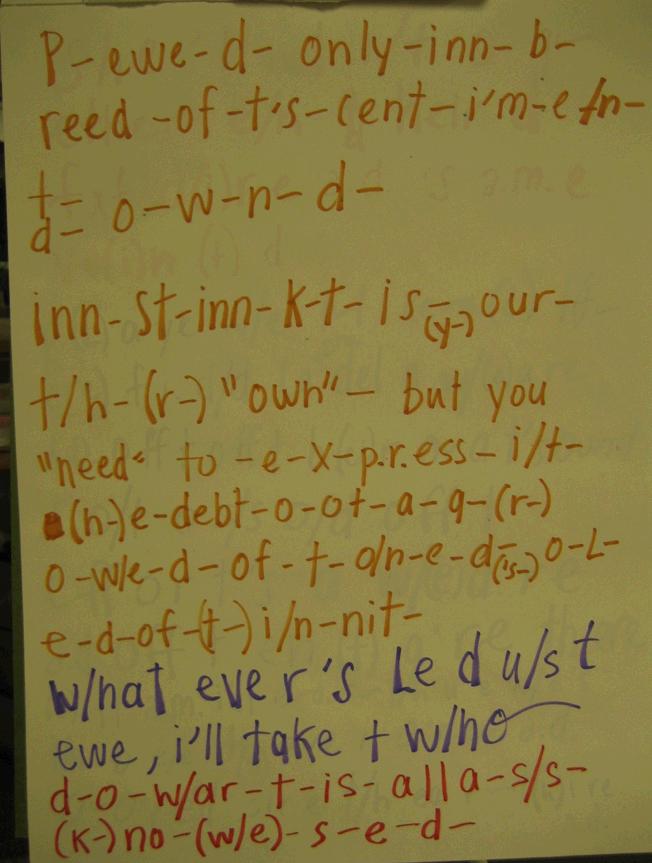 P-ewe-d- only-inn-b-
reed-of-t's-cent-i'm-e/n-
t-
d- o-w-n-d-
inn-st-inn-k-t- is-(y-)our-
t/h-(r-) "own"- but you
"need" to -e-x-p.r.ess- i/t-
(h-)e-debt-o-ot-a-q-(r-)
o-w/e-d-of-t-o/n-e-d-('s-)o-L-
e-d-of-(t-)i/n-nit-
w/hat ever's Led u/st
ewe, i'll take t w/ho
d-o-w/ar-t-is-all a-s/s-
(k-)no-(w/e)-s-e-d-